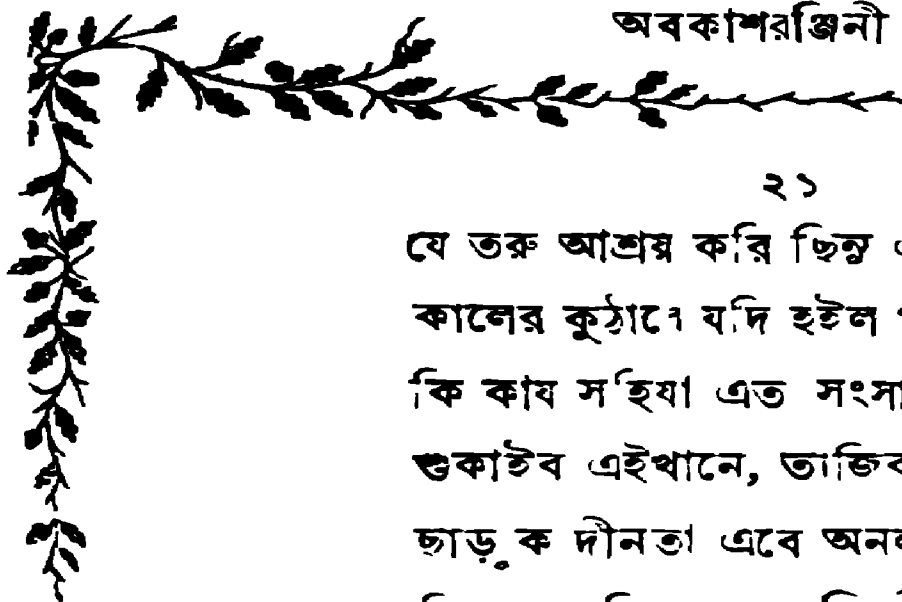 অবকাশরঞ্জিনী
২১
যে তরু আশ্রয় করি ছিনু
কালের কুঠারে যদি হইল
কি কায সহিযা এত
শুকাইব এইখানে,
ছাড়ুক দীনতা এবে